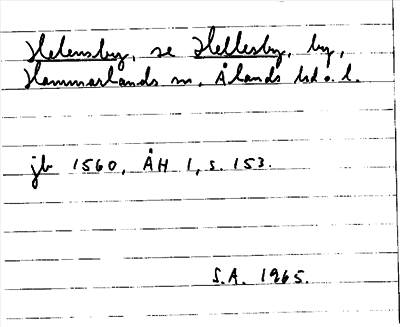 Helensby, se Hellesby, by,
Hammarlands sn, Ålands hd o. l.
jb 1560, ÅH 1, s. 153.
S.A. 1965.